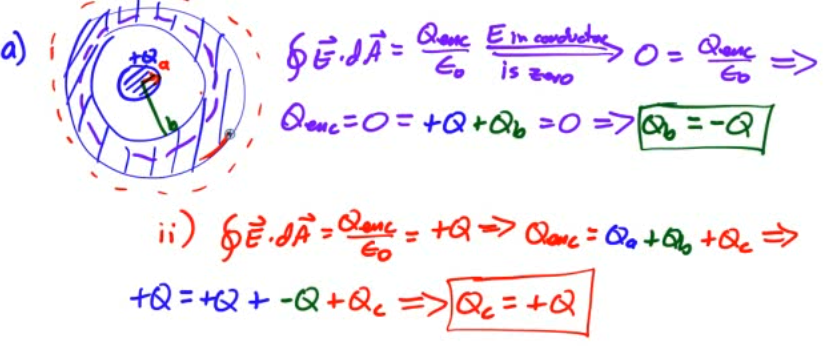 a) +Q a b ∮E⃗·dA⃗ = Qenc/ε₀ E in conductor is zero ⟶ 0 = Qenc/ε₀ =>
Qenc = 0 = +Q + Qb = 0 => Qb = -Q
ii) ∮E⃗·dA⃗ = Qenc/ε₀ = +Q => Qenc = Qa + Qb + Qc =>
+Q = +Q + -Q + Qc => Qc = +Q